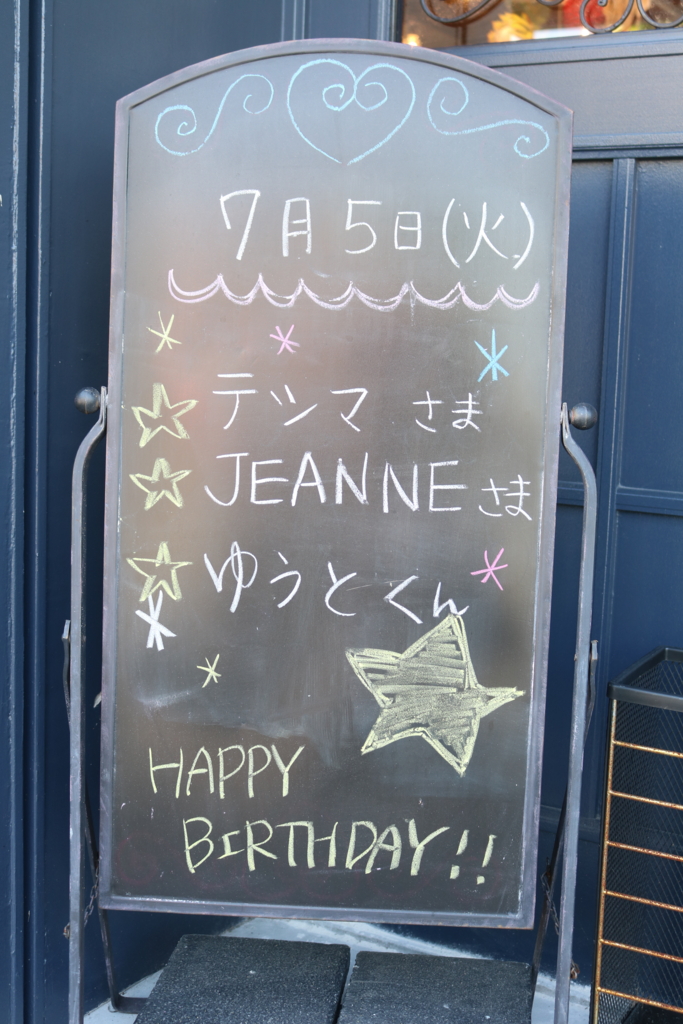 7月5日(火)
テツマ さま
JEANNE さま
ゆうとくん
HAPPY
BIRTHDAY!!